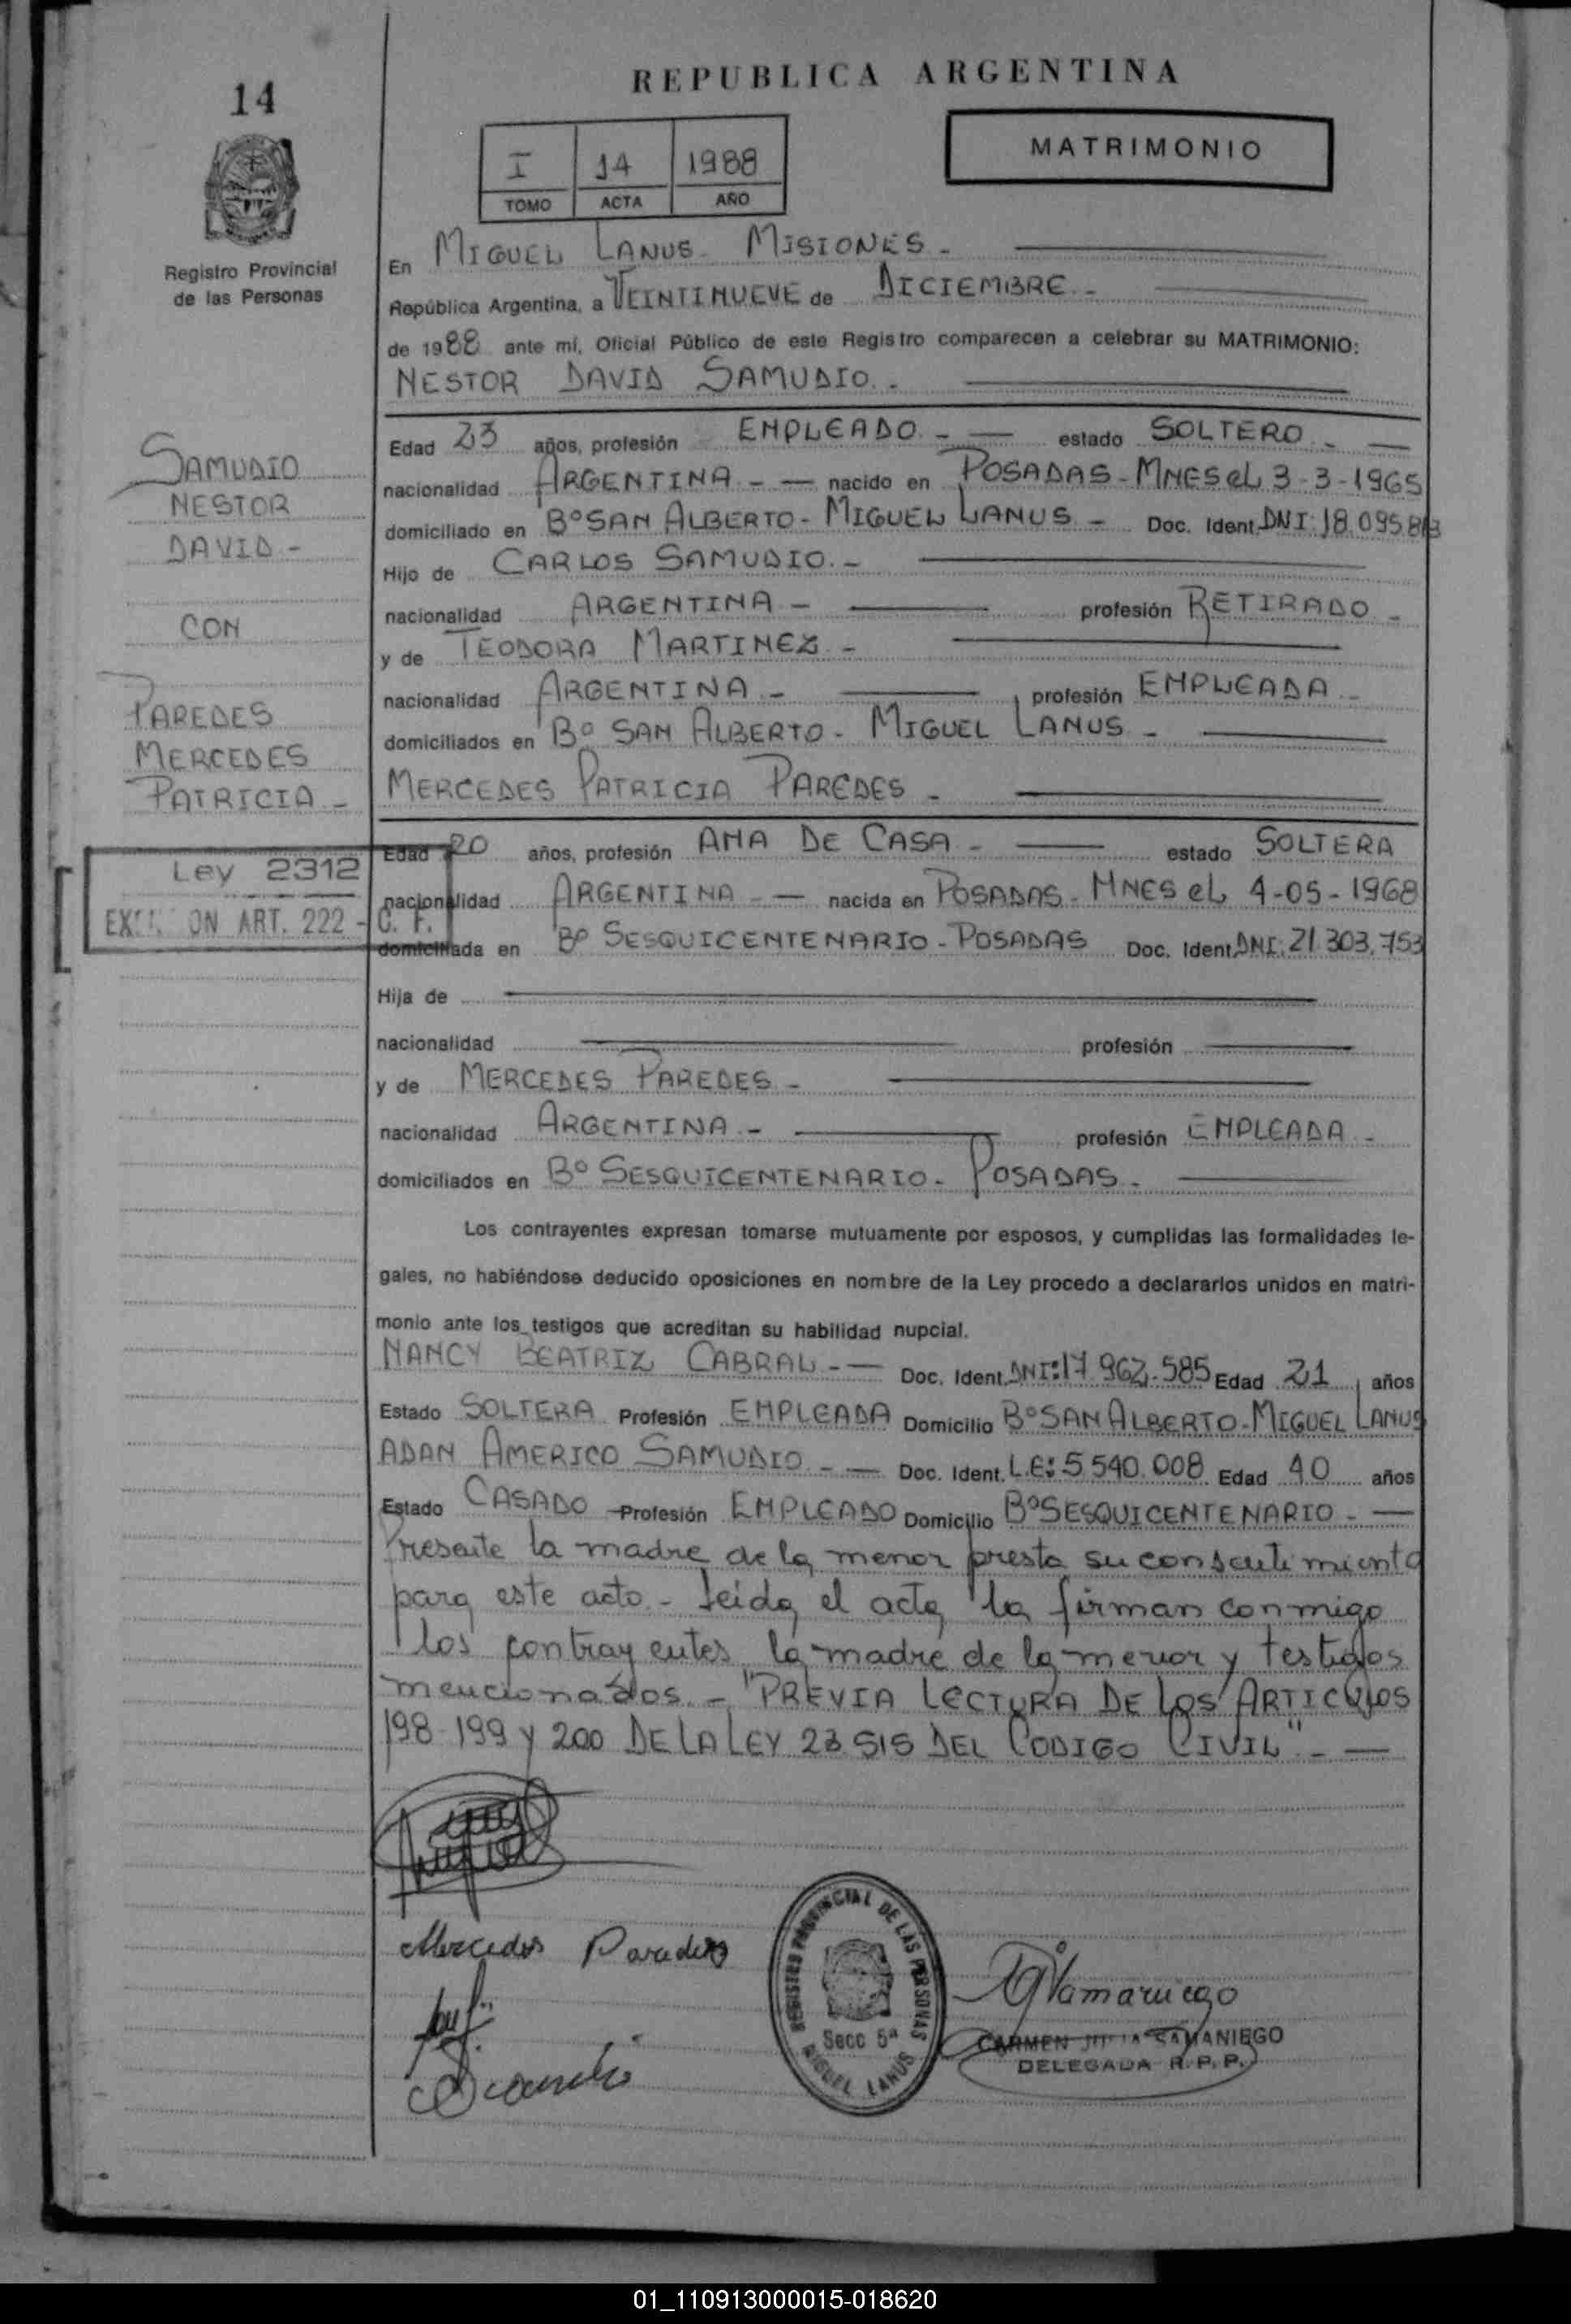 REPUBLICA ARGENTINA
14
MATRIMONIO
I 14 1988
TOMO ACTA AÑO
Registro Provincial
de las Personas
En MIGUEL LANUS - MISIONES -
República Argentina, a VEINTINUEVE de DICIEMBRE -
de 1988 ante mí, Oficial Público de este Registro comparecen a celebrar su MATRIMONIO:
NESTOR DAVID SAMUDIO. -
Edad 23 años, profesión EMPLEADO - — estado SOLTERO - —
nacionalidad ARGENTINA - — nacido en POSADAS - MNES el 3-3-1965
domiciliado en B° SAN ALBERTO - MIGUEL LANUS - Doc. Ident. DNI: 18.095.813
Hijo de CARLOS SAMUDIO. -
nacionalidad ARGENTINA - profesión RETIRADO -
y de TEODORA MARTINEZ -
nacionalidad ARGENTINA - profesión EMPLEADA -
domiciliados en B° SAN ALBERTO - MIGUEL LANUS -
SAMUDIO
NESTOR
DAVID -
CON
PAREDES
MERCEDES
PATRICIA -
MERCEDES PATRICIA PAREDES -
Edad 20 años, profesión AMA DE CASA - estado SOLTERA
nacionalidad ARGENTINA - — nacida en POSADAS - MNES el 4-05-1968
domiciliada en B° SESQUICENTENARIO - POSADAS Doc. Ident. DNI: 21.303.753
Ley 2312
ART. 222 - C. F.
Hija de
nacionalidad profesión
y de MERCEDES PAREDES -
nacionalidad ARGENTINA - profesión EMPLEADA -
domiciliados en B° SESQUICENTENARIO - POSADAS -
Los contrayentes expresan tomarse mutuamente por esposos, y cumplidas las formalidades le-
gales, no habiéndose deducido oposiciones en nombre de la Ley procedo a declararlos unidos en matri-
monio ante los testigos que acreditan su habilidad nupcial.
NANCY BEATRIZ CABRAL - — Doc. Ident. DNI: 17.962.585 Edad 21 años
Estado SOLTERA Profesión EMPLEADA Domicilio B° SAN ALBERTO - MIGUEL LANUS
ADAN AMERICO SAMUDIO - — Doc. Ident. L.E: 5.540.008 Edad 40 años
Estado CASADO Profesión EMPLEADO Domicilio B° SESQUICENTENARIO - —
Presente la madre de la menor presta su consentimiento
para este acto. - Leida el acta la firman conmigo
los contrayentes la madre de la menor y testigos
mencionados. - "PREVIA LECTURA DE LOS ARTICULOS
198-199 y 200 DE LA LEY 23.515 DEL CODIGO CIVIL" - —
Mercedes Paredes
REGISTRO PROVINCIAL DE LAS PERSONAS
Secc 5ª
MIGUEL LANUS
CARMEN JULIA SAMANIEGO
DELEGADA R.P.P.
01_110913000015-018620